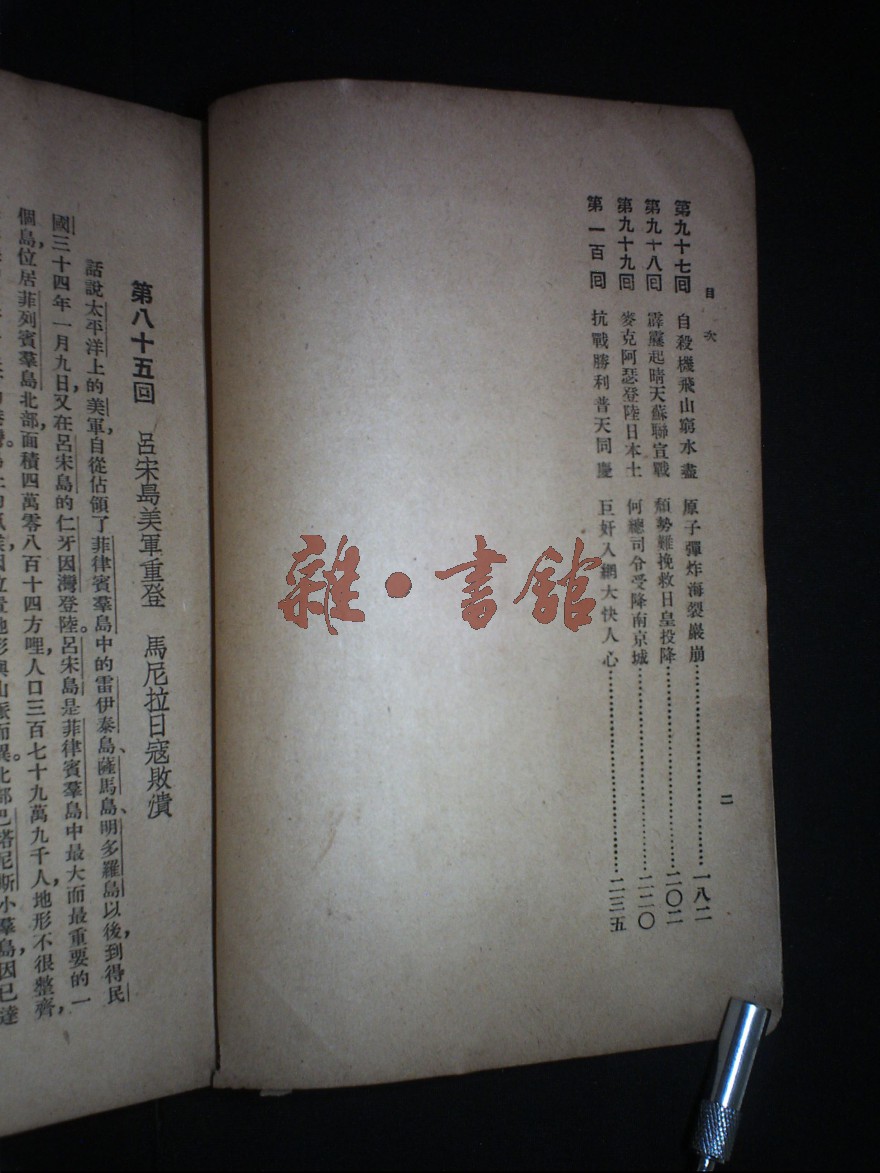 目次
第九十七回 自殺機飛山窮水盡 原子彈炸海裂巖崩……一八二
第九十八回 霹靂起晴天蘇聯宣戰 頹勢難挽救日皇投降……二〇二
第九十九回 麥克阿瑟登陸日本土 何總司令受降南京城……二二〇
第一百回 抗戰勝利普天同慶 巨奸入網大快人心……二三五
二
雜·書館
第八十五回 呂宋島美軍重登 馬尼拉日寇敗潰
話說太平洋上的美軍,自從佔領了菲律賓羣島中的雷伊泰島、薩馬島、明多羅島以後,到得民
國三十四年一月九日,又在呂宋島的仁牙因灣登陸。呂宋島是菲律賓羣島中最大而最重要的一
個島,位居菲列賓羣島北部,面積四萬零八百十四方哩,人口三百七十九萬九千人,地形不很整齊,
因位置地形與山脈而異。北部巴塔尼斯小羣島,因已達